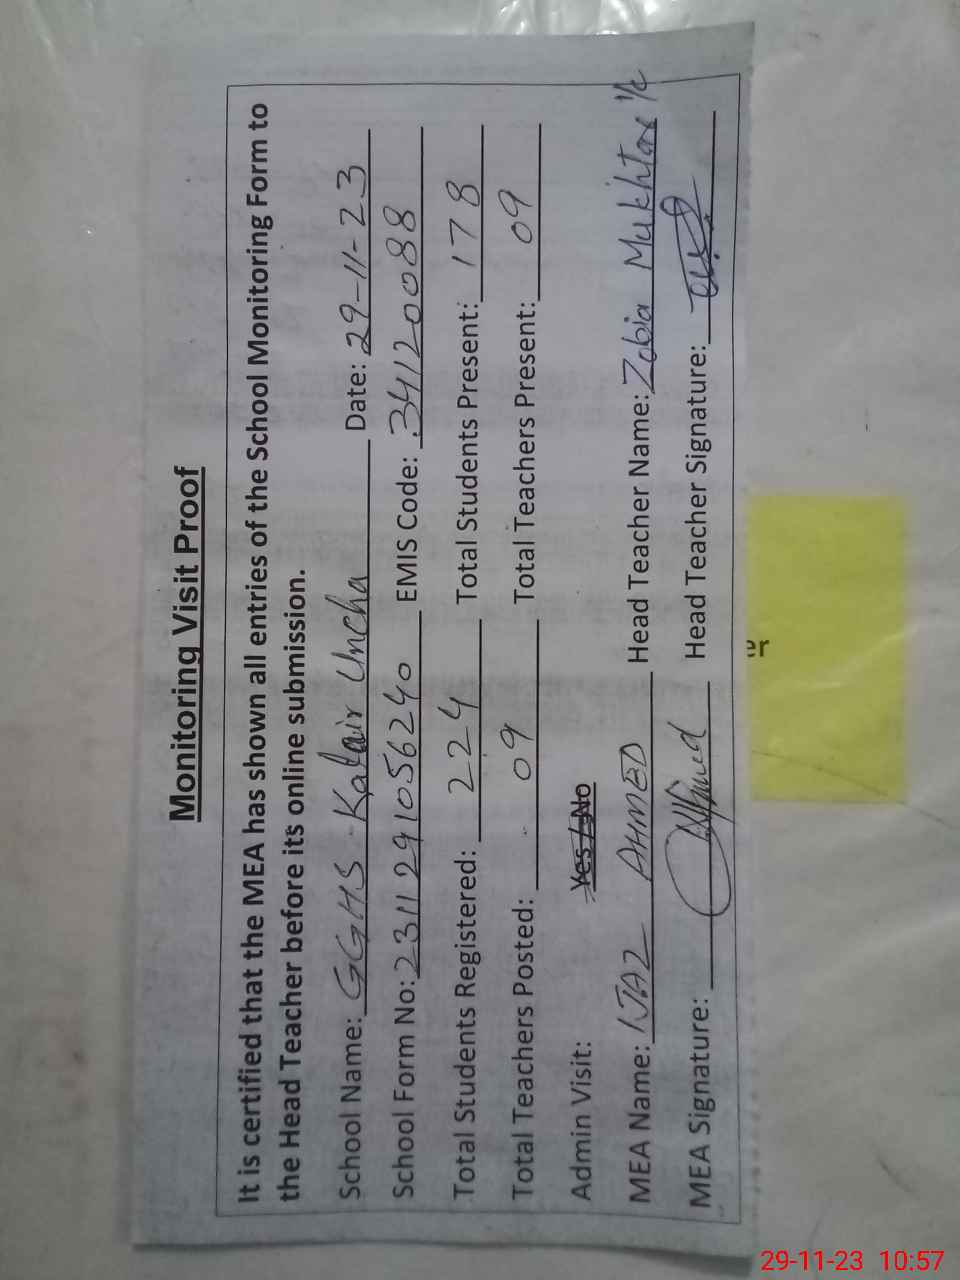 Monitoring Visit Proof
It is certified that the MEA has shown all entries of the School Monitoring Form to
the Head Teacher before its online submission.
School Name: GGHS - Katair Uncha Date: 29-11-23
School Form No: 2311291056240 EMIS Code: 34120088
Total Students Registered: 224 Total Students Present: 178
Total Teachers Posted: 09 Total Teachers Present: 09
Admin Visit: Yes / No
MEA Name: IJAZ AHMED Head Teacher Name: Zobia Mukhtar I/c
MEA Signature: Head Teacher Signature:
er
29-11-23 10:57